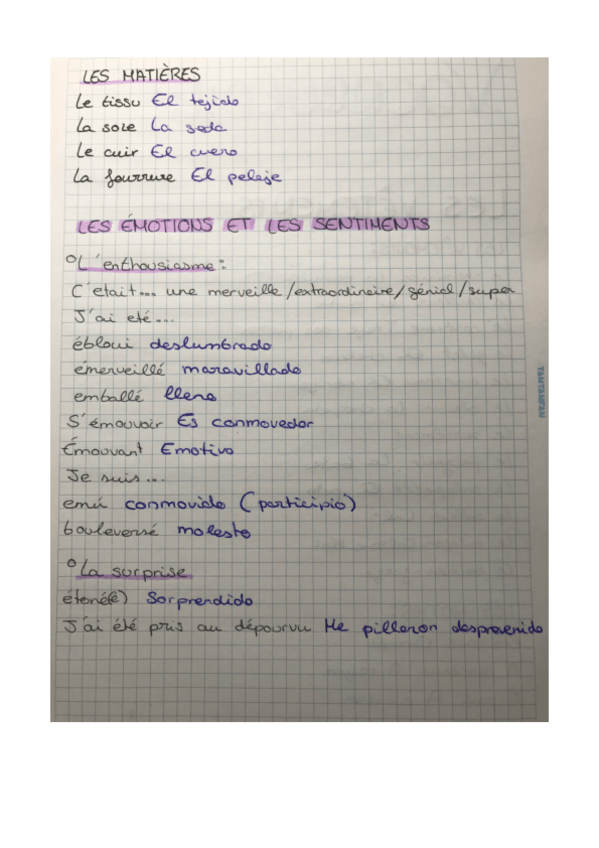 LES MATIÈRES
Le tissu El tejido
La soie La seda
Le cuir El cuero
La fourrure El pelaje
LES ÉMOTIONS ET LES SENTIMENTS
L'enthousiasme:
C'etait... une merveille/extraordinaire/génial/super
J'ai eté...
ébloui deslumbrado
émerveillé maravillado
emballé lleno
S'émouvoir Es conmovedor
Émouvant Emotivo
Je suis...
emú conmovido (participio)
bouleversé molesto
La surprise
étoné(e) Sorprendido
J'ai été pris au dépourvu Me pilleron desprevenido